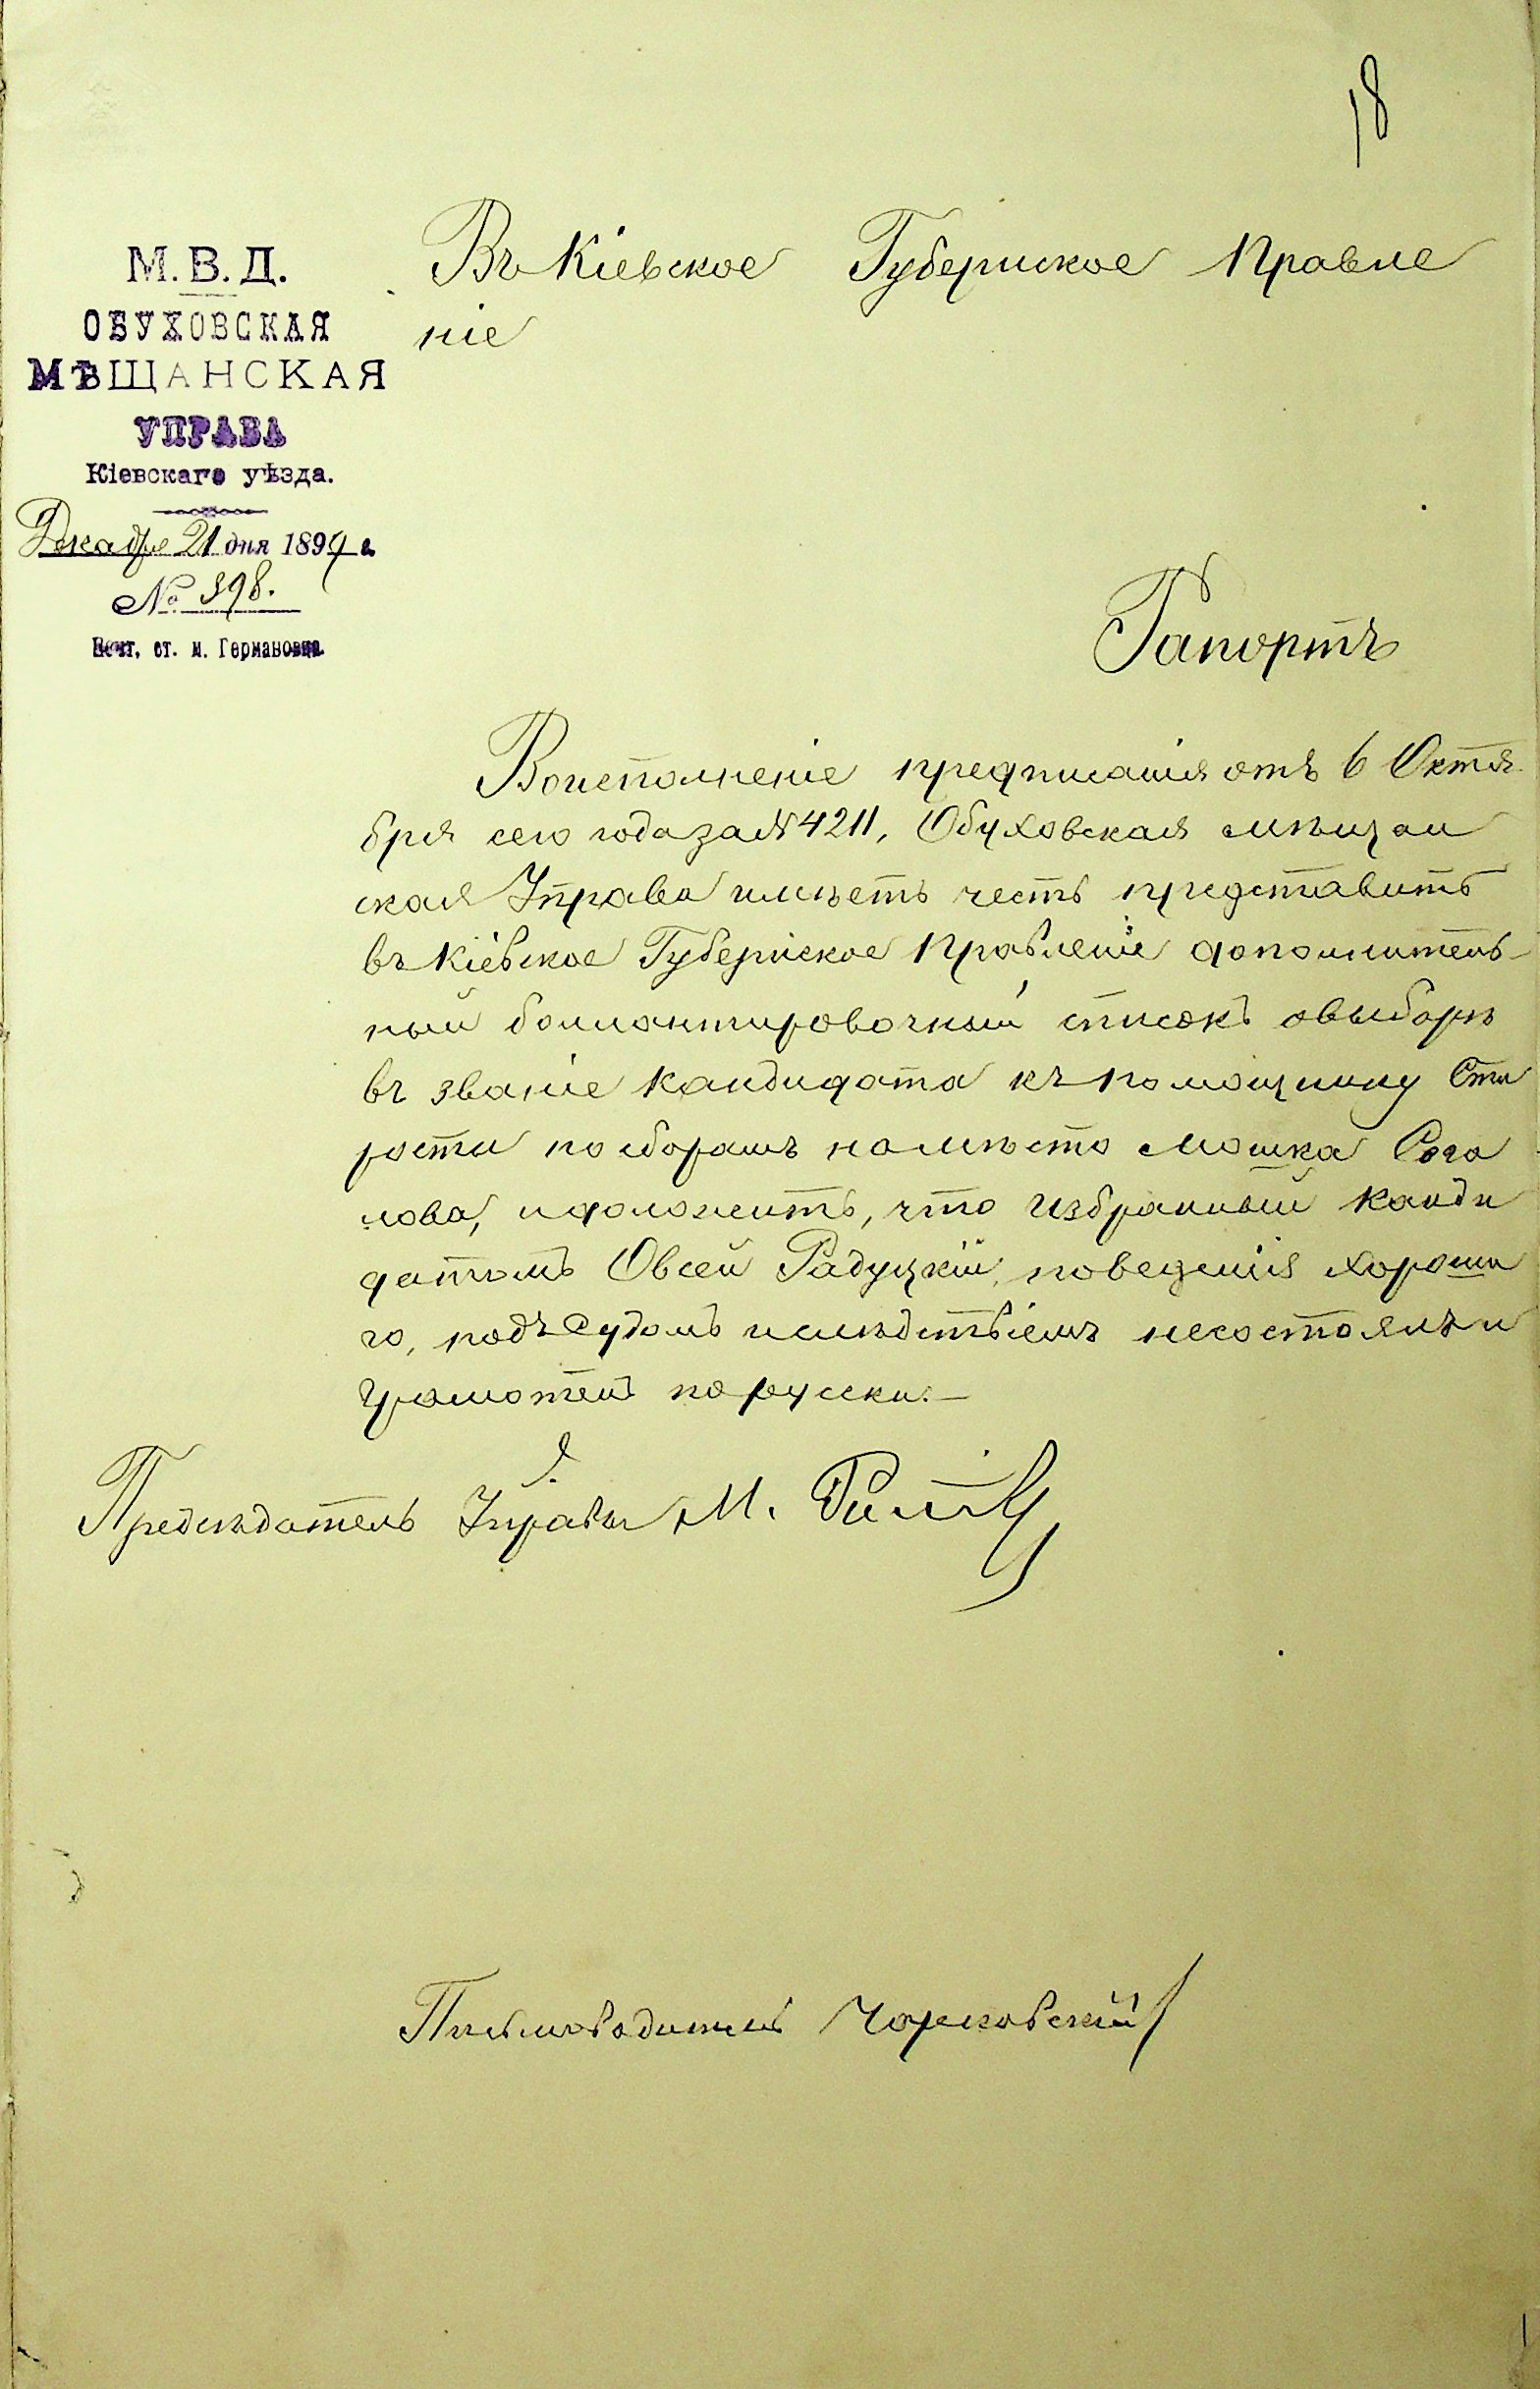 18
М.В.Д.
ОБУХОВСКАЯ
МѢЩАНСКАЯ
УПРАВА
Кіевскаго уѣзда.
Декабря 21 дня 1899 г.
№ 398.
Почт. ст. м. Германовка
Въ Кіевское Губернское Правле
ніе
Рапортъ
Воисполненіе предписанія отъ 6 Октя
бря сего года за № 4211, Обуховская мѣщан
ская Управа имѣетъ честь представить
въ Кіевское Губернское Правленіе дополнитель-
ный баллонтировочный списокъ овыборѣ
въ званіе Кандидата къ помощнику Ста
росты по сборамъ намѣсто Мошка Сога
лова, идоложить, что избранный Канди
датомъ Овсей Радуцкій, поведенія хороша
го, подъ Судомъислѣдствіемъ несостоялъ и
грамотенъ по русски.—
Предсѣдатель Управы М.
Письмоводитель Чарновскій